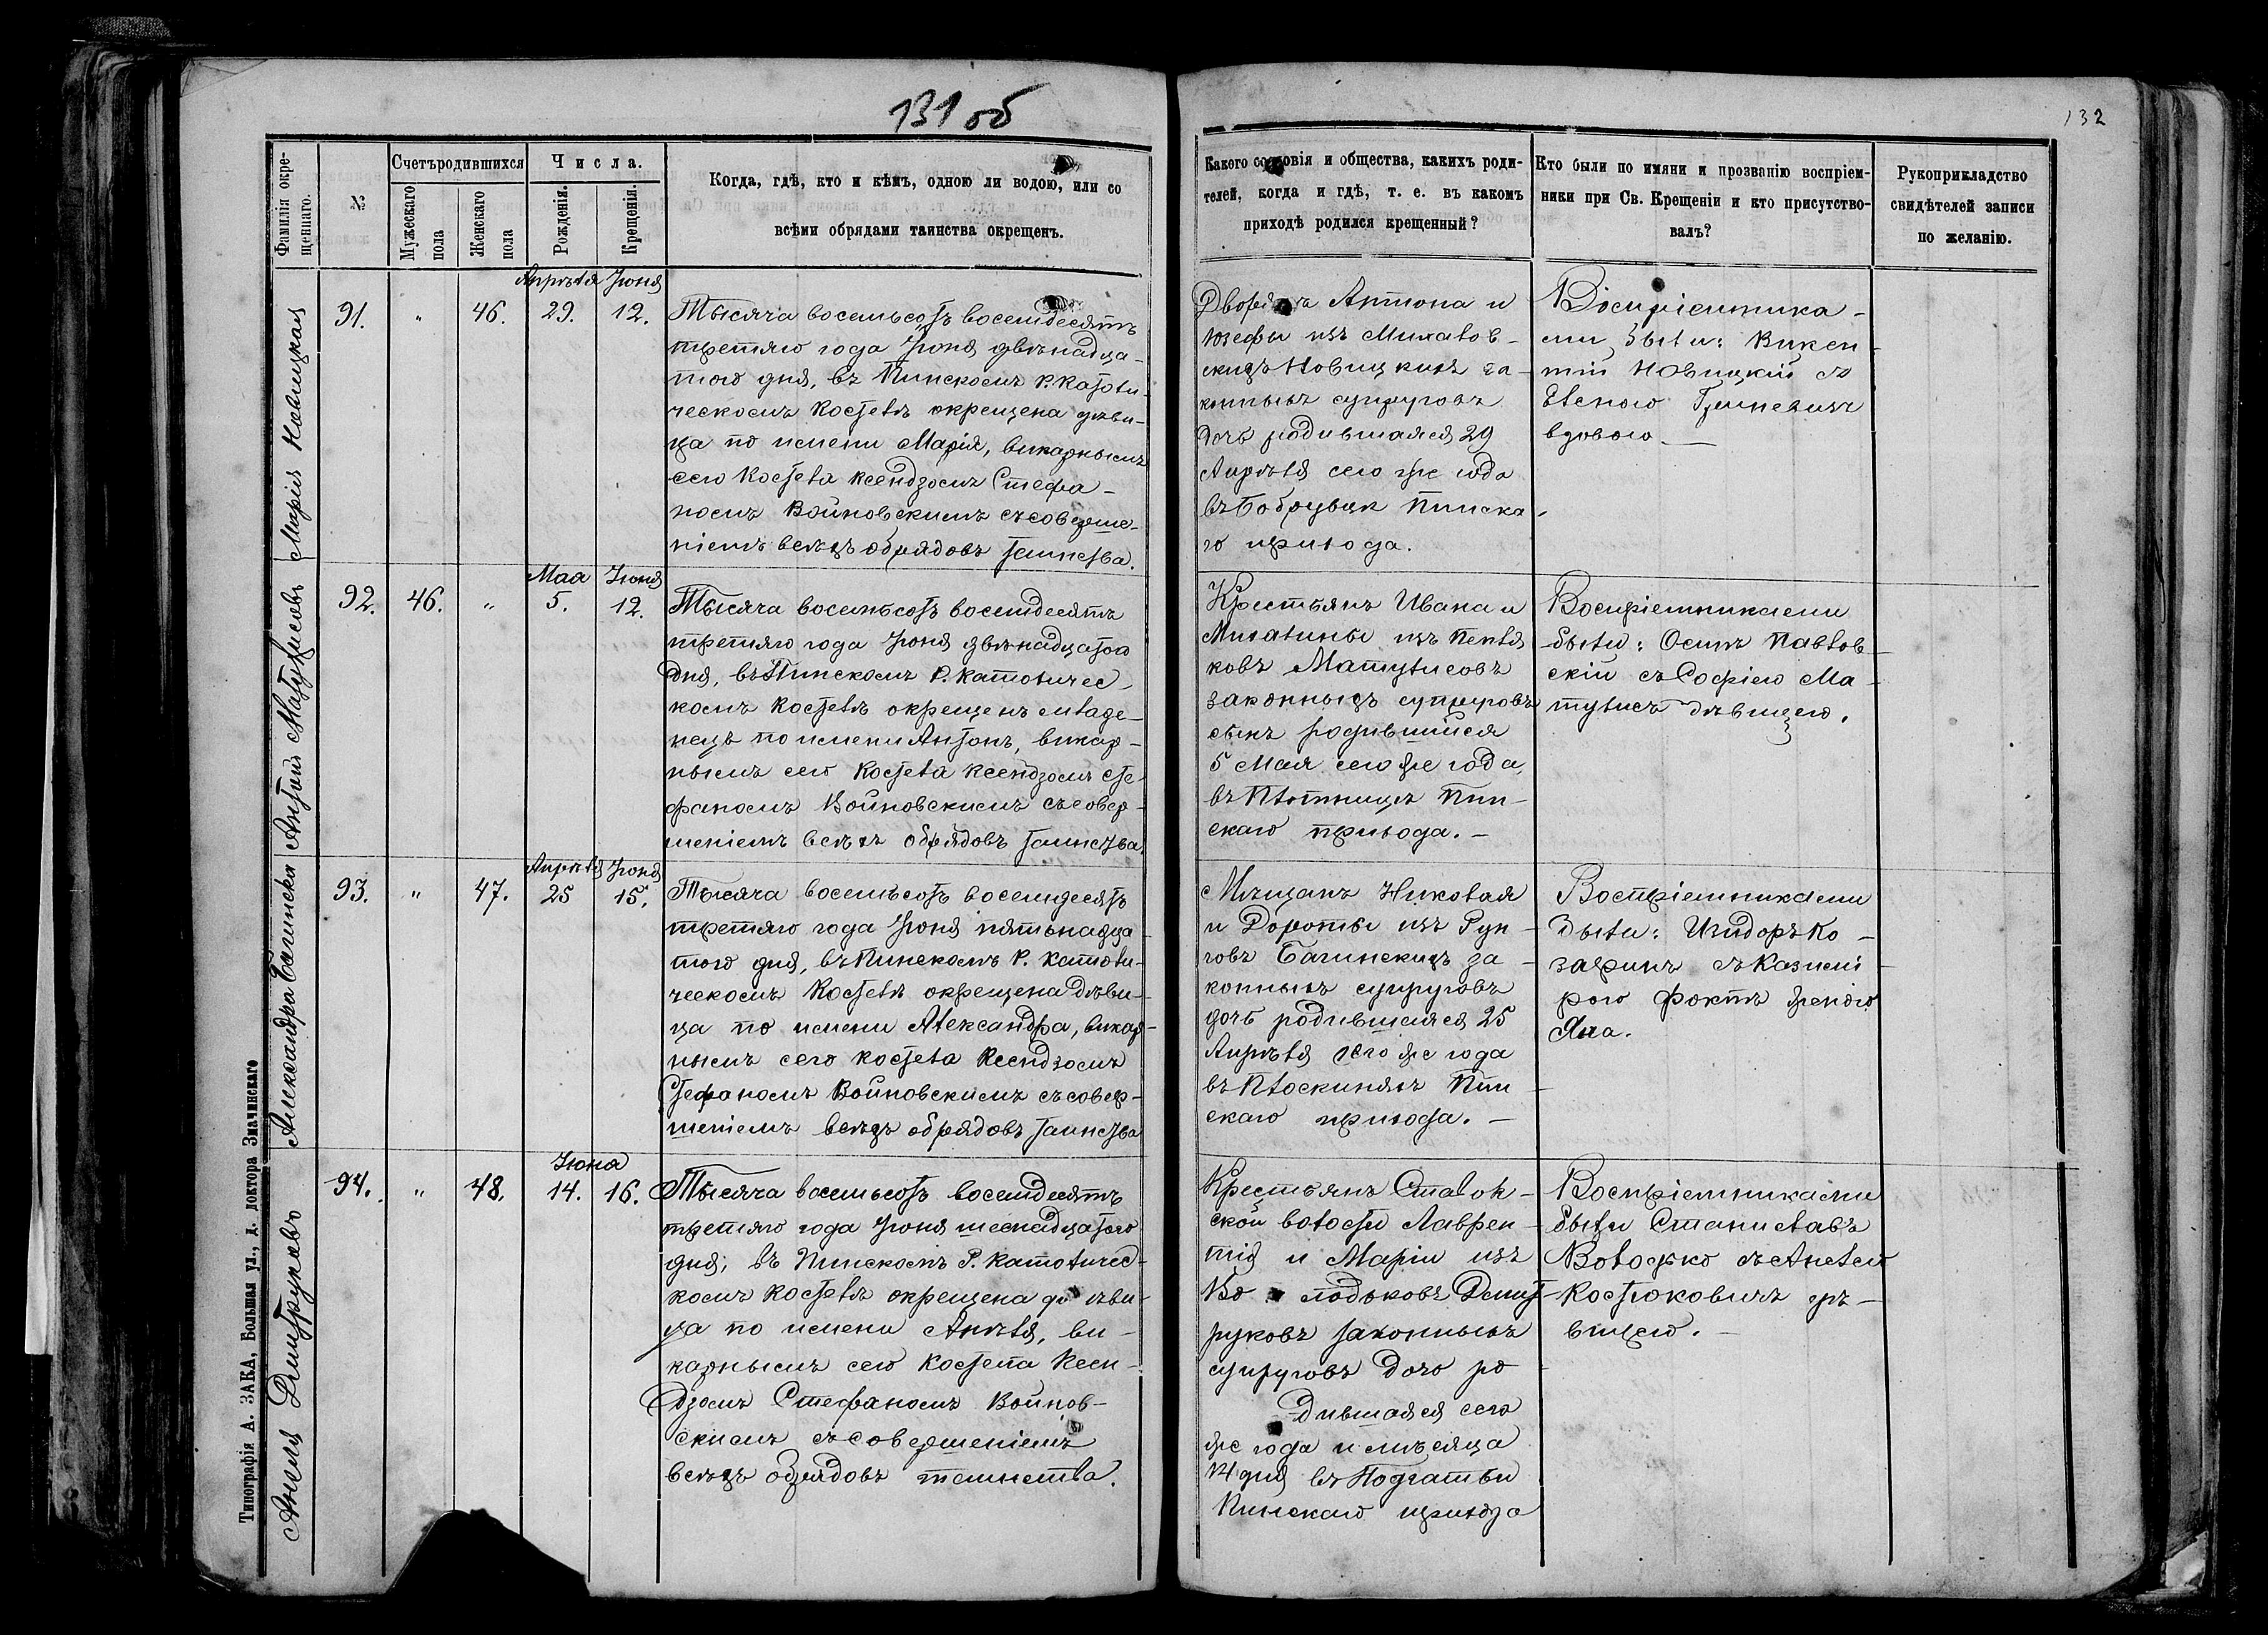 131 об
132
Фамилія окре-
щеннаго.
№
Счетъ родившихся
Мужескаго
пола
Женскаго
пола
Числа.
Рожденія.
Крещенія.
Когда, гдѣ, кто и кѣмъ, одною ли водою, или со
всѣми обрядами таинства окрещенъ.
Какого сословія и общества, какихъ роди-
телей, когда и гдѣ, т. е. въ какомъ
приходѣ родился крещенный?
Кто были по имяни и прозванію воспріем-
ники при Св. Крещеніи и кто присутство-
валъ?
Рукоприкладство
свидѣтелей записи
по желанію.
Марія Новицкая
91.
"
46.
Апрѣля
29.
Іюня
12.
Тысяча восемьсотъ восемдесятъ
третяго года Іюня двѣнадца-
того дня, въ Пинскомъ Р. Католи-
ческомъ костелѣ окрещена дѣви-
ца по имени Марія, викарнымъ
сего костела ксендзомъ Стефа-
номъ Войновскимъ съ соверше-
ніемъ всѣхъ обрядовъ таинства.
Дворянъ Антона и
Юзефы изъ
Новицкихъ за-
конныхъ супруговъ
дочь родившаяся 29
Апрѣля сего же года
въ Пинска-
го прихода.
Воспріемника-
ми были: Викен-
тій Новицкій съ
вдовою.
Антонъ Матулисовъ
92.
46.
"
Мая
5.
Іюня
12.
Тысяча восемьсотъ восемдесятъ
третяго года Іюня двѣнадцатого
дня, въ Пинскомъ Р. Католичес-
комъ костелѣ окрещенъ младе-
нецъ по имени Антонъ, викар-
нымъ сего костела ксендзомъ Сте-
фаномъ Войновскимъ съ совер-
шеніемъ всѣхъ обрядовъ таинства.
Крестьянъ Ивана и
Михалины изъ
Матулисовъ
законныхъ супруговъ
сынъ родившійся
5 Мая сего же года,
въ Плотницѣ Пин-
скаго прихода.
Воспріемниками
были: Осипъ Павлов-
скій съ Софіею Ма-
тулисъ дѣвицею.
Александра Багинская
93.
"
47.
Апрѣля
25
Іюня
15.
Тысяча восемьсотъ восемдесятъ
третяго года Іюня пятьнадца-
того дня, въ Пинскомъ Р. Католи-
ческомъ костелѣ окрещена дѣви-
ца по имени Александра, викар-
нымъ сего костела ксендзомъ
Стефаномъ Войновскимъ съ совер-
шеніемъ всѣхъ обрядовъ таинства
Мѣщанъ Николая
и Дороты изъ
Багинскихъ за-
конныхъ супруговъ
дочь родившаяся 25
Апрѣля сего же года
въ Плоскиняхъ Пин-
скаго прихода.
Воспріемниками
были: Изидоръ Ко-
заринъ съ Казими-
рою Фоктъ женою
Яна.
Анеля Дмитруковъ
94.
"
48.
Іюня
14.
16.
Тысяча восемьсотъ восемдесятъ
третяго года Іюня шеснадцатого
дня, въ Пинскомъ Р. Католичес-
комъ костелѣ окрещена дѣви-
ца по имени Анеля, ви-
карнымъ сего костела ксен-
дзомъ Стефаномъ Войнов-
скимъ съ совершеніемъ
всѣхъ обрядовъ таинства.
Крестьянъ Ставок-
ской волости Лаврен-
тія и Маріи изъ
Володьковъ Дмит-
руковъ законныхъ
супруговъ дочь ро-
дившаяся сего
же года и мѣсяца
14 дня въ Подгатьи
Пинскаго прихода
Воспріемниками
были Станиславъ
Володько съ Анелею
Костюковичъ дѣ-
вицею.
Типографія А. ЗАКА, Большая ул., д. доктора Значинскаго